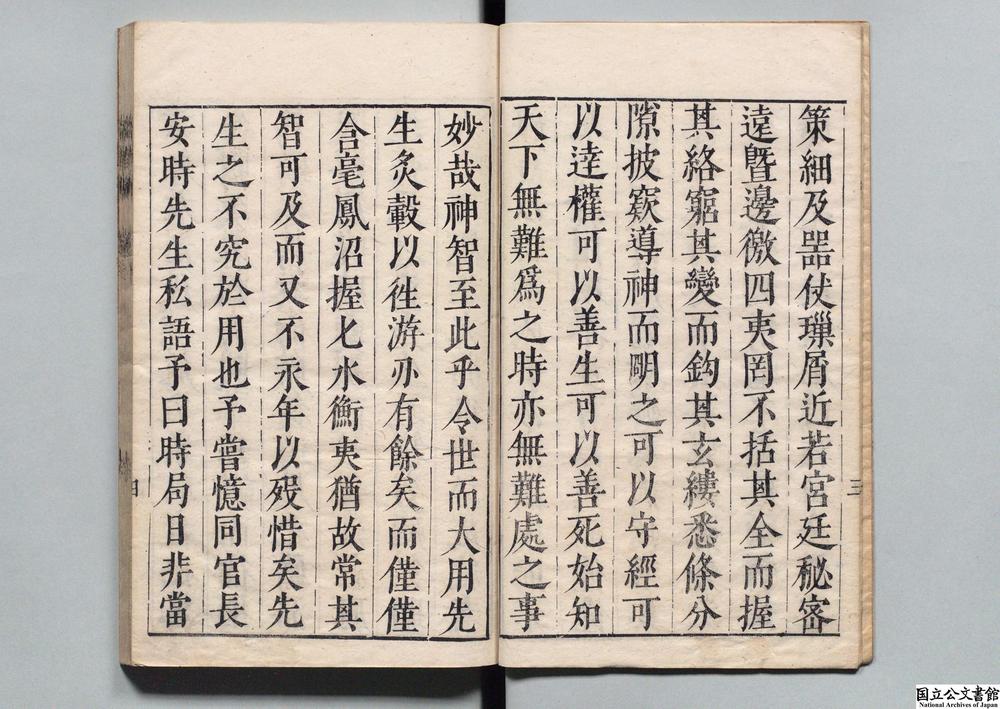 策細及噐仗璅屑近若宮廷秘密
遠曁邊徼四夷罔不括其全而握
其絡窮其變而鈎其玄縷悉條分
隙披窽導神而明之可以守經可
以逹權可以善生可以善死始知
天下無難爲之時亦無難處之事
妙哉神智至此乎令世而大用先
生炙轂以徃游刃有餘矣而僅僅
含毫鳳沼握匕水衡夷猶故常其
智可及而又不永年以殁惜矣先
生之不究於用也予嘗憶同官長
安時先生私語予曰時局日非當
三
四
国立公文書館
National Archives of Japan